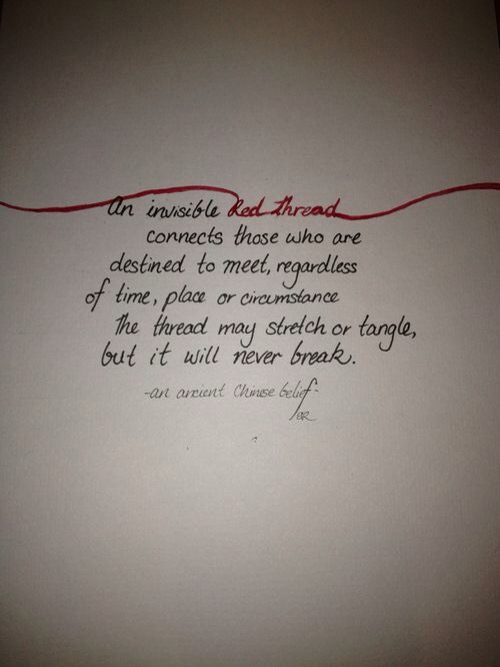 An invisible Red Thread
connects those who are
destined to meet, regardless
of time, place or circumstance
The thread may stretch or tangle,
but it will never break.
-an ancient Chinese belief-